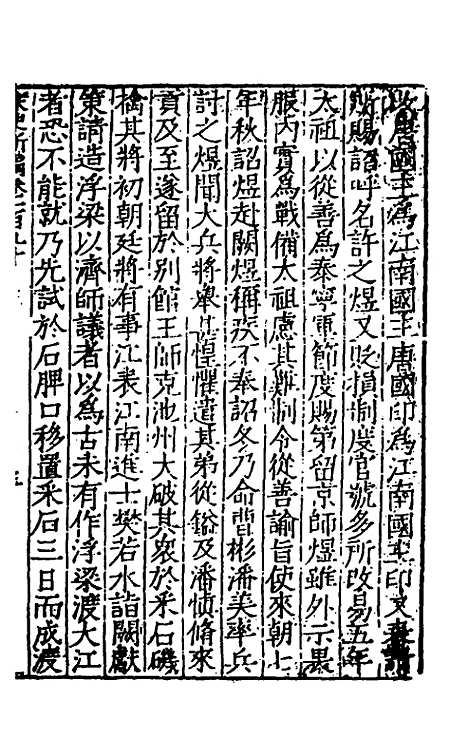 改唐國主爲江南國主唐國印爲江南國主印又奏請
所賜詔呼名許之煜又貶損制度官號多所改易五年
太祖以從善爲泰寧軍節度賜第留京師煜雖外示畏
服內實爲戰備太祖慮其難制令從善諭旨使來朝七
年秋詔煜赴闕煜稱疾不奉詔冬乃命曹彬潘美率兵
討之煜聞大兵將舉甚惶懼遣其弟從鎰及潘慎脩來
貢及至遂留於別館王師克池州大破其衆於采石磯
擒其將初朝廷將有事江表江南進士樊若水詣闕獻
策請造浮梁以濟師議者以爲古未有作浮梁渡大江
者恐不能就乃先試於石牌口移置采石三日而成渡
宋史新編卷一百九十